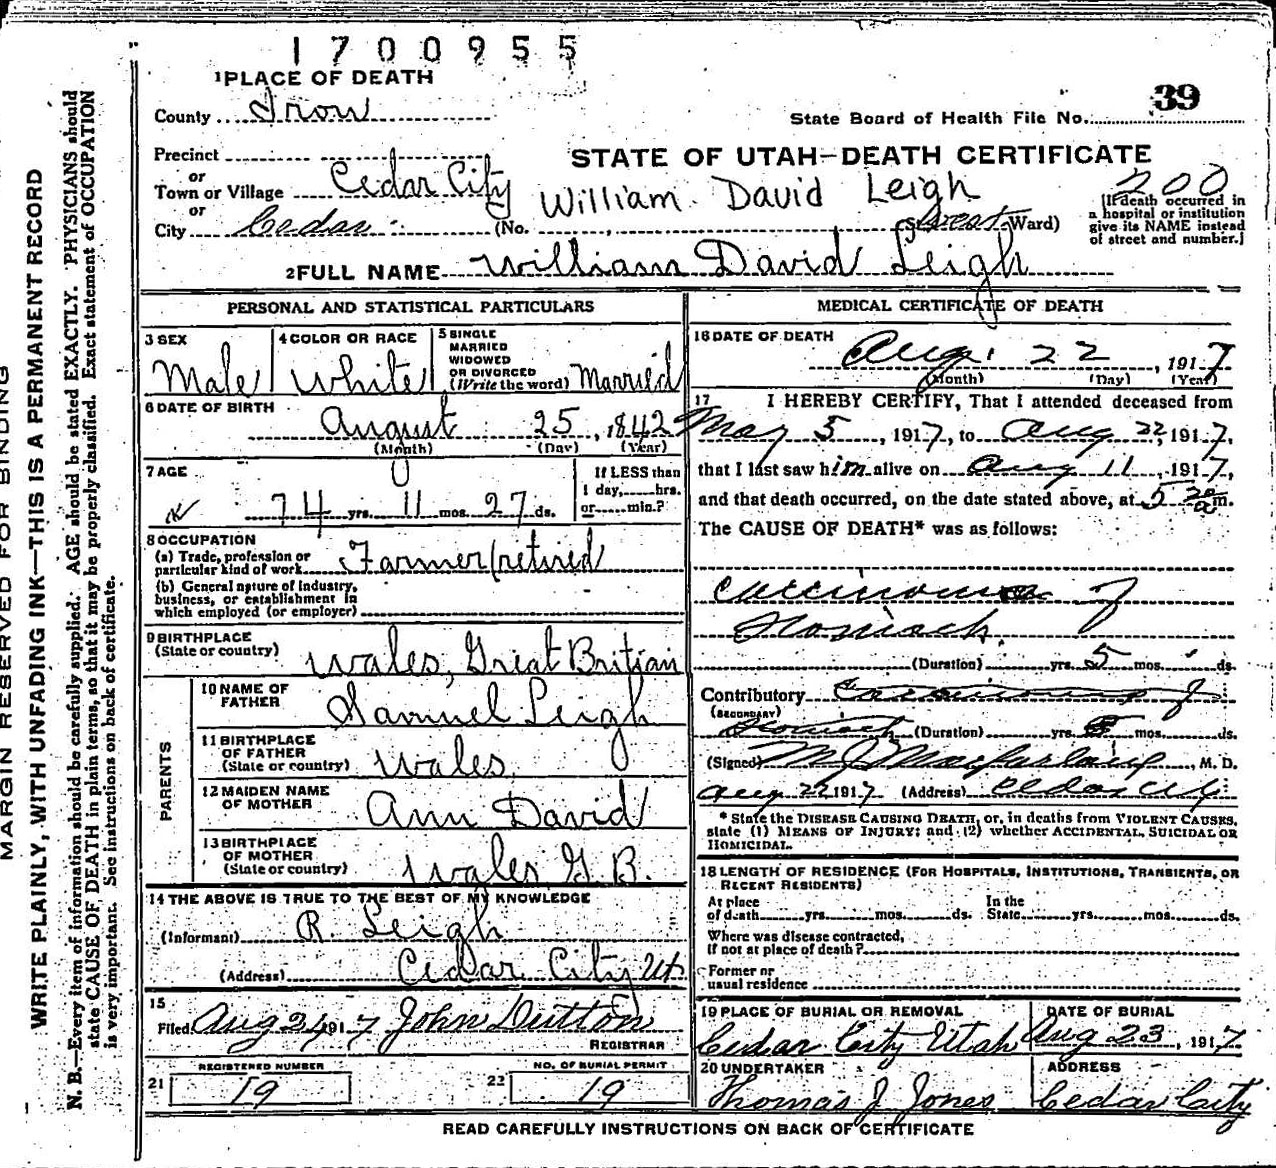 1700955
1 PLACE OF DEATH
County Iron
39
State Board of Health File No.
Precinct
or
STATE OF UTAH—DEATH CERTIFICATE
Town or Village Cedar City
William David Leigh
200
or
City Cedar (No. , (St. West Ward)
[If death occurred in
a hospital or institution
give its NAME instead
of street and number.]
2 FULL NAME William David Leigh
PERSONAL AND STATISTICAL PARTICULARS
3 SEX
Male
4 COLOR OR RACE
White
5 SINGLE
MARRIED
WIDOWED
OR DIVORCED
(Write the word) Married
6 DATE OF BIRTH
August 25, 1842
(Month) (Day) (Year)
7 AGE
74 yrs. 11 mos. 27 ds.
If LESS than
1 day, hrs.
or min.?
8 OCCUPATION
(a) Trade, profession or
particular kind of work Farmer (retired
(b) General nature of industry,
business, or establishment in
which employed (or employer)
9 BIRTHPLACE
(State or country)
Wales, Great Britian
PARENTS
10 NAME OF
FATHER
Samuel Leigh
11 BIRTHPLACE
OF FATHER
(State or country) Wales
12 MAIDEN NAME
OF MOTHER
Ann David
13 BIRTHPLACE
OF MOTHER
(State or country) Wales G. B.
14 THE ABOVE IS TRUE TO THE BEST OF MY KNOWLEDGE
(Informant) R. Leigh
(Address) Cedar City Ut
15
Filed Aug 24 1917 John Dutton
REGISTRAR
REGISTERED NUMBER
21 19
NO. OF BURIAL PERMIT
22 19
MEDICAL CERTIFICATE OF DEATH
16 DATE OF DEATH
Aug. 22, 1917
(Month) (Day) (Year)
17 I HEREBY CERTIFY, That I attended deceased from
May 5, 1917, to Aug 22, 1917,
that I last saw him alive on Aug 11, 1917,
and that death occurred, on the date stated above, at 5 30 a m.
The CAUSE OF DEATH* was as follows:
Carcinoma of
Stomach.
(Duration) yrs. 5 mos. ds.
Contributory Carcinoma of
(SECONDARY)
Stomach (Duration) yrs. 5 mos. ds.
(Signed) M J Macfarlane, M. D.
Aug 22 1917 (Address) Cedar City
* State the DISEASE CAUSING DEATH, or, in deaths from VIOLENT CAUSES,
state (1) MEANS OF INJURY; and (2) whether ACCIDENTAL, SUICIDAL OR
HOMICIDAL.
18 LENGTH OF RESIDENCE (FOR HOSPITALS, INSTITUTIONS, TRANSIENTS, OR
RECENT RESIDENTS)
At place
of death yrs. mos. ds.
In the
State yrs. mos. ds.
Where was disease contracted,
if not at place of death?
Former or
usual residence
19 PLACE OF BURIAL OR REMOVAL
Cedar City Utah
DATE OF BURIAL
Aug 23, 1917
20 UNDERTAKER
Thomas J Jones
ADDRESS
Cedar City
READ CAREFULLY INSTRUCTIONS ON BACK OF CERTIFICATE
MARGIN RESERVED FOR BINDING
WRITE PLAINLY, WITH UNFADING INK—THIS IS A PERMANENT RECORD
N. B.—Every item of information should be carefully supplied. AGE should be stated EXACTLY. PHYSICIANS should
state CAUSE OF DEATH in plain terms, so that it may be properly classified. Exact statement of OCCUPATION
is very important. See instructions on back of certificate.